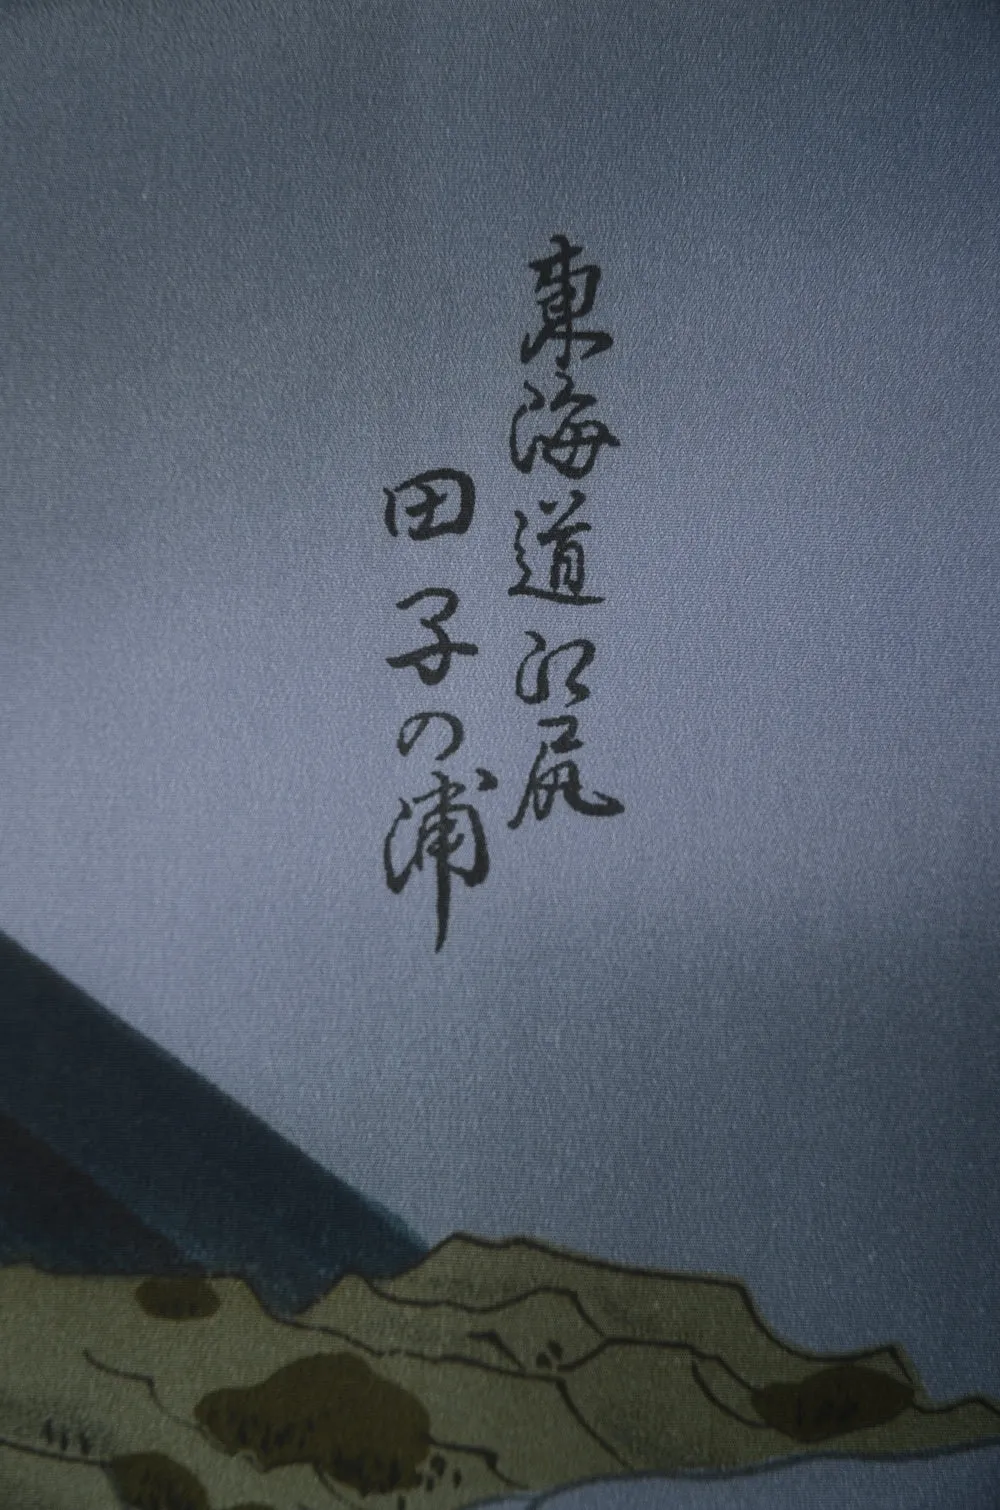 東海道江尻
田子の浦